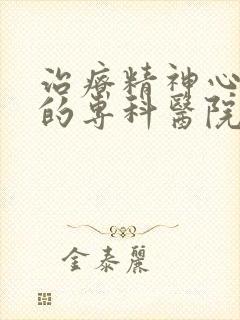 治療精神心
的專科醫院
金泰麗